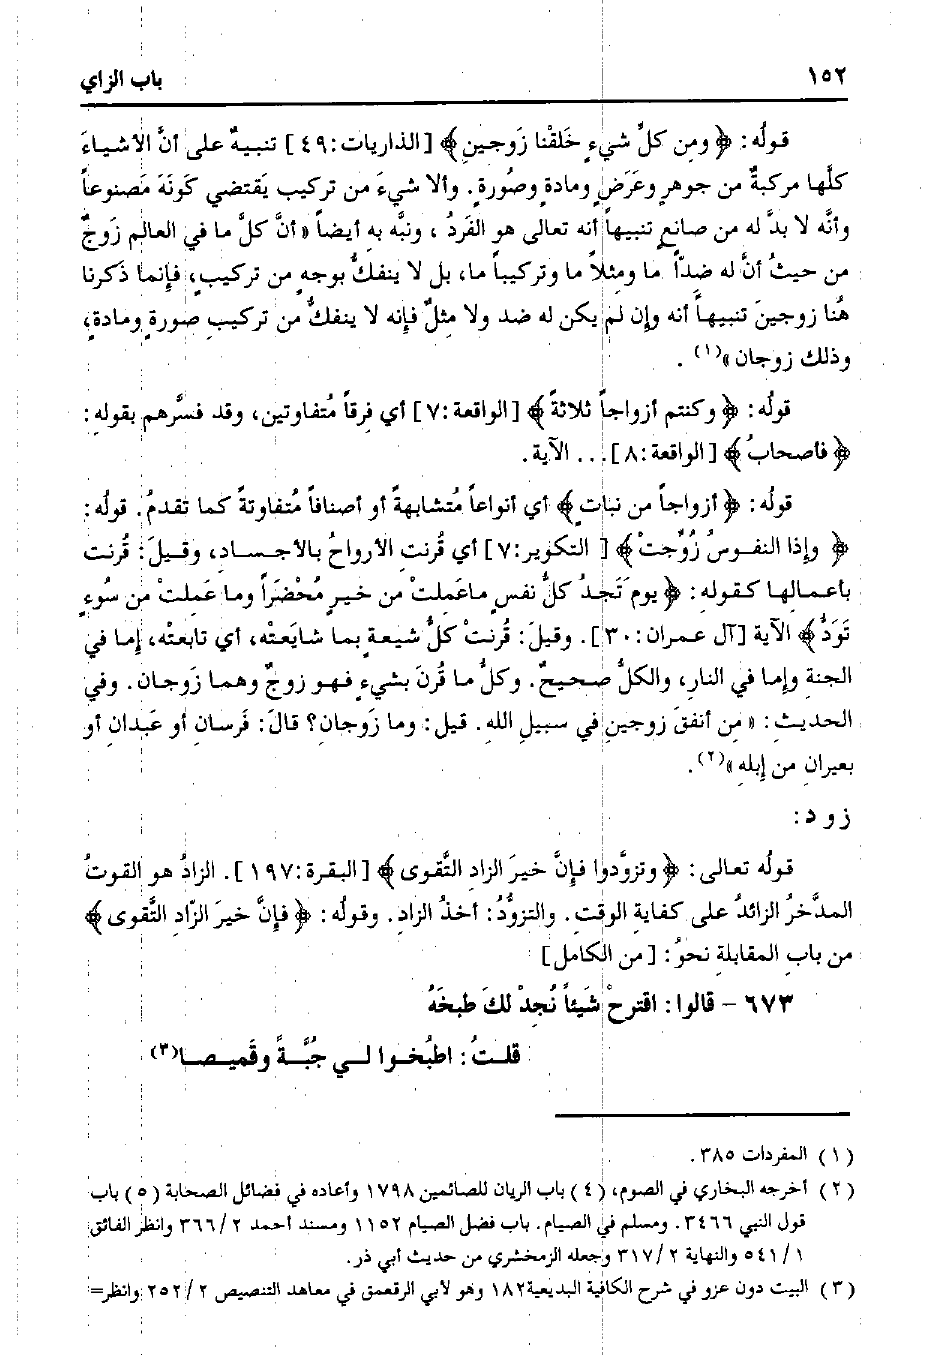 ١٥٢ باب الزاي
قولُه: ﴿ ومِن كلِّ شيءٍ خَلقْنا زَوجينِ﴾ [الذاريات:٤٩] تنبيهٌ على أنَّ الأشياءَ
كلَّها مركبةٌ من جوهرٍ وعَرَضٍ ومادةٍ وصُورةٍ. وألا شيءَ من تركيب يَقتضي كَونَهَ مَصنوعاً
وأنَّه لا بدَّ له من صانعٍ تنبيهاً أنه تعالى هو الفَردُ ، ونبَّه به أيضاً « أنَّ كلَّ ما في العالم زَوجٌ
من حيثُ أنَّ له ضدّاً ما ومِثلاً ما وتركيباً ما، بل لا ينفكُّ بوجهٍ من تركيبٍ، فإنما ذَكرنا
هُنا زوجينَ تنبيهاً أنه وإن لم يكن له ضد ولا مثلٌ فإنه لا ينفكُّ من تركيبِ صورةٍ ومادةٍ،
وذلك زوجان »(١) .
قولُه: ﴿ وكنتم أزواجاً ثلاثةً ﴾ [الواقعة:٧] أي فرقاً مُتفاوتين، وقد فسَّرهم بقولهِ:
﴿ فأصحابُ ﴾ [الواقعة:٨]... الآية.
قولُه: ﴿ أزواجاً من نباتٍ﴾ أي أنواعاً مُتشابهةً أو أصنافاً مُتفاوتةً كما تقدمُ. قولُه:
﴿ وإذا النفوسُ زُوِّجتْ﴾ [ التكوير:٧] أي قُرنتِ الأرواحُ بالأجسادِ، وقيلَ: قُرنت
بأعمالِها كقولهِ: ﴿ يومَ تَجدُ كلُّ نفسٍ ماعَملتْ من خيرٍ مُحْضَراً وما عَملتْ من سُوءٍ
تَوَدُّ﴾ الآية [آل عمران:٣٠]. وقيلَ: قُرنتْ كلُّ شيعةٍ بما شايَعتْه، أي تابعتْه، إما في
الجنة وإما في النارِ، والكلُّ صحيحٌ. وكلُّ ما قُرنَ بشيءٍ فهو زوجٌ وهما زَوجان. وفي
الحديثِ: « من أنفقَ زوجينِ في سبيلِ الله. قيل: وما زَوجان؟ قالَ: فَرسان أو عَبدان أو
بعيرانِ من إبلهِ »(٢).
ز و د:
قولُه تعالى: ﴿ وتزوَّدوا فإنَّ خيرَ الزادِ التَّقوى ﴾ [البقرة:١٩٧]. الزادُ هو القوتُ
المدَّخرُ الزائدُ على كفاية الوقت. والتزوُّدُ: أخذُ الزادِ. وقولُه: ﴿ فإنَّ خيرَ الزّادِ التَّقوى﴾
من بابِ المقابلة نحوُ: [من الكامل]
٦٧٣ - قالوا: اقترحْ شَيئاً نُجدْ لكَ طبخَهُ
قلتُ: اطبُخوا لي جُبَّةً وقَميصا(٣)
(١) المفردات ٣٨٥.
(٢) أخرجه البخاري في الصوم، (٤) باب الريان للصائمين ١٧٩٨ وأعاده في فضائل الصحابة (٥) باب
قول النبي ٣٤٦٦. ومسلم في الصيام. باب فضل الصيام ١١٥٢ ومسند أحمد ٢/٣٦٦ وانظر الفائق
١/٥٤١ والنهاية ٢/٣١٧ وجعله الزمخشري من حديث أبي ذر.
(٣) البيت دون عزو في شرح الكافية البديعية١٨٢ وهو لأبي الرقعمق في معاهد التنصيص ٢/٢٥٢ وانظر=